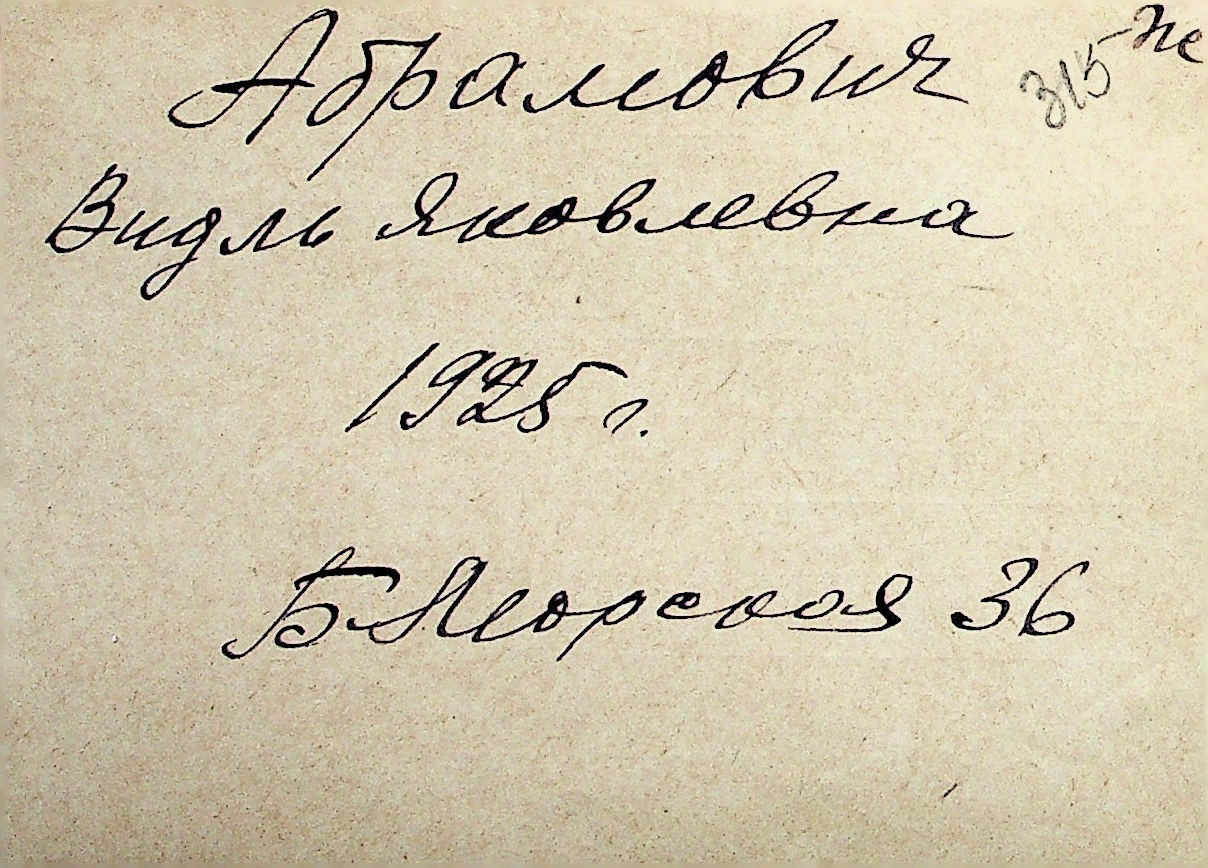 Абрамович
315
Видль Яковлевна
1925 г.
Б Морская 36